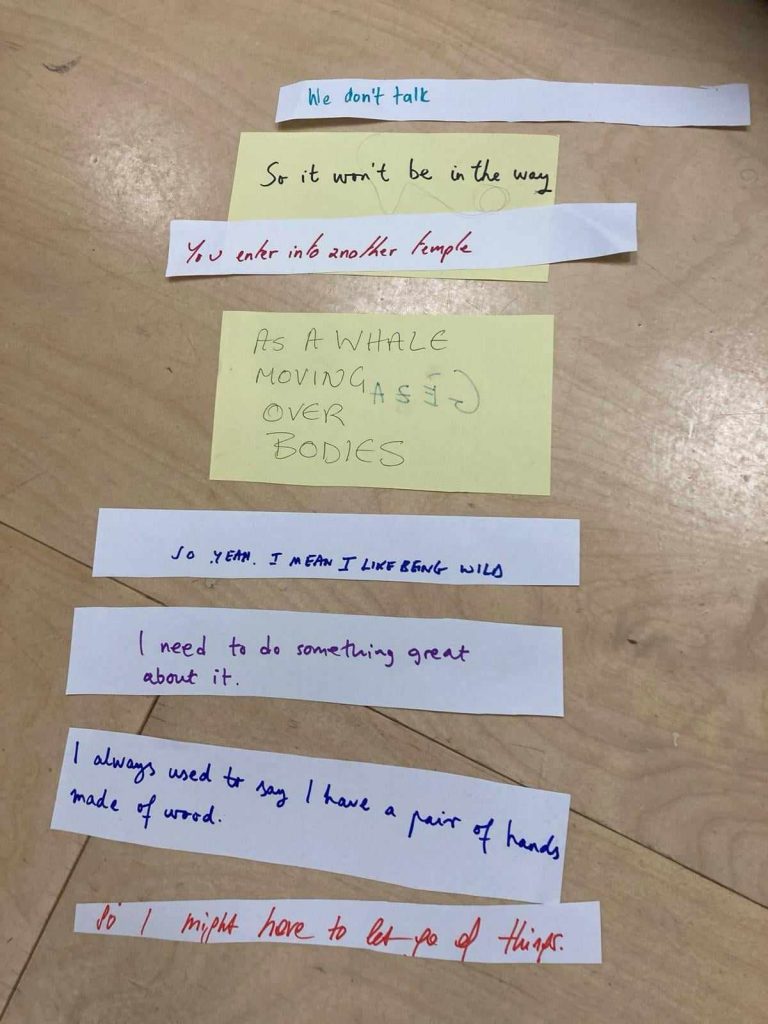 We don't talk
So it won't be in the way
You enter into another temple
AS A WHALE
MOVING
OVER
BODIES
SO YEAH. I MEAN I LIKE BEING WILD
I need to do something great
about it.
I always used to say I have a pair of hands
made of wood.
So I might have to let go of things.